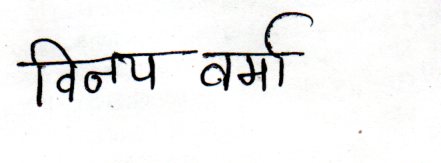 विनय वर्मा